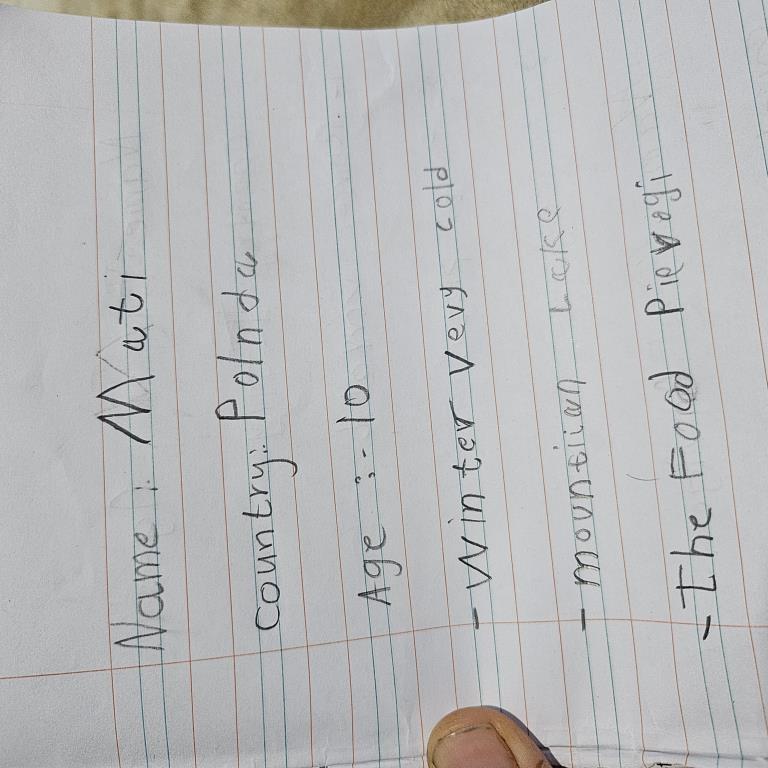 Name: Mati
country: Polnda
Age :- 10
- Winter very cold
- mountiian Lake
- The Food Pierogi